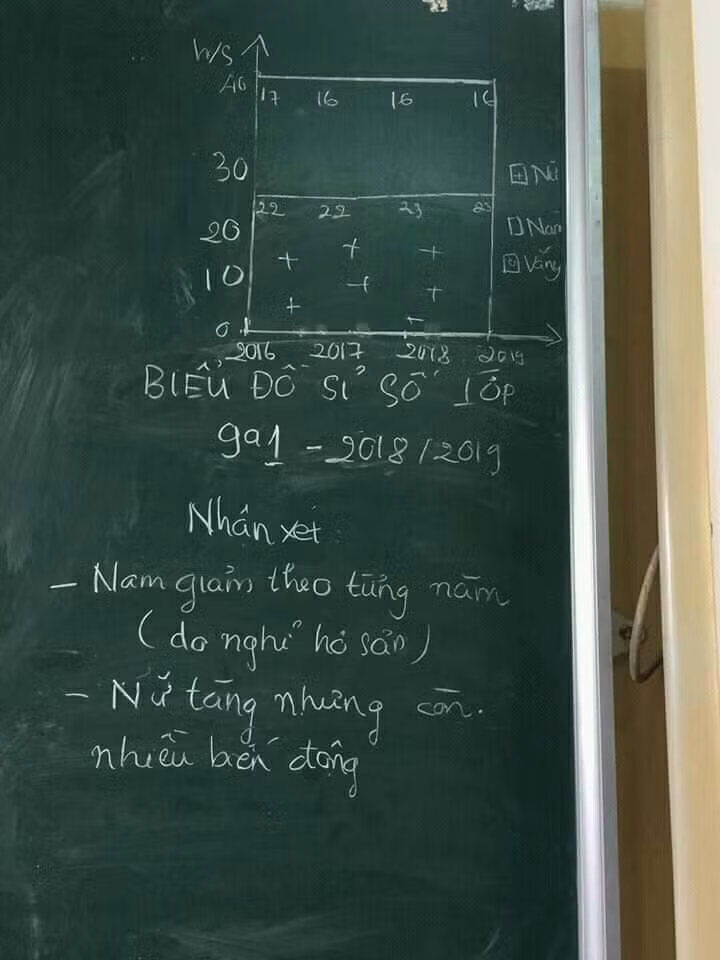 h/s
40
17 16 16 16
30
Nữ
22 22 23 23
20
Nam
10
Vắng
0
2016 2017 2018 2019
BIỂU ĐỒ SĨ SỐ LỚP
9a1 - 2018/2019
Nhận xét:
- Nam giảm theo từng năm
(do nghỉ hộ sản)
- Nữ tăng nhưng còn
nhiều biến động